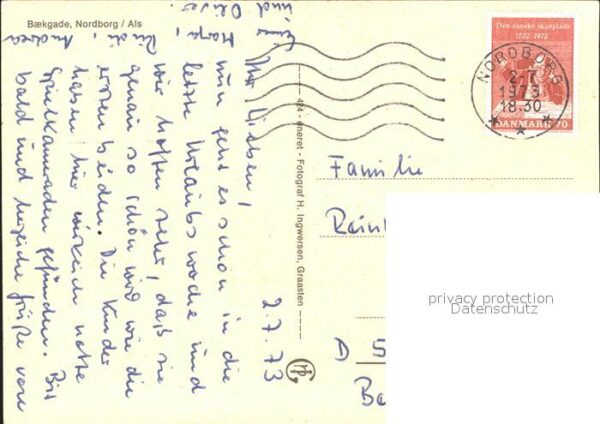 Bækgade, Nordborg / Als
2.7.73
Ihr Lieben!
nun geht es schon in die
letzte Urlaubswoche und
wir hoffen sehr, daß sie
genau so schön wird wie die
ersten beiden. Die Kinder
haben hier wirklich nette
Spielkameraden gefunden. Bis
bald und herzliche Grüße von
Rudi, Andrea
und Oliver.
424 - eneret - Fotograf H. Ingwersen, Graasten
Den danske skueplads
1722-1972
DANMARK 70
NORDBORG
2-7
1973
18.30
Familie
D
privacy protection
Datenschutz